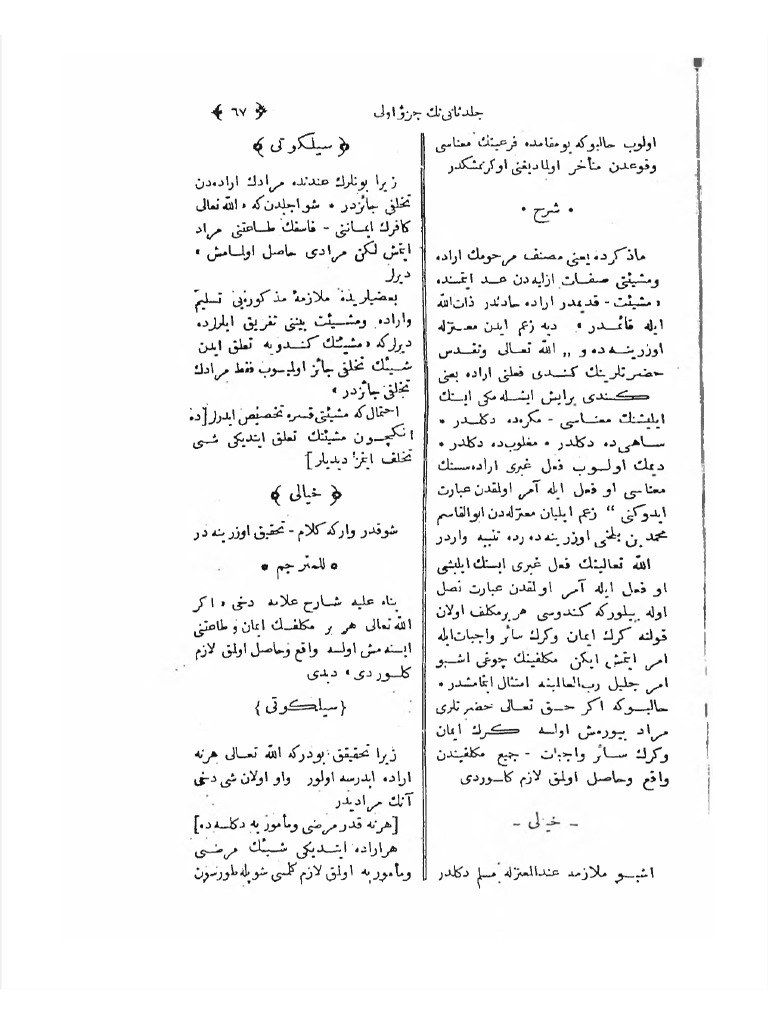 جلد ثانی نك جزؤ اولی ﴿ ٦٧ ﴾
اولوب حالبوكه بومقامده فرعیتك معناسی
وقوعدن متأخر اولمادیغنی اوكرنمشكدر
• شرح •
ماذكرده یعنی مصنف مرحومك اراده
ومشیئتی صفات ازلیه دن عد ایتمسنده
« مشیئت - قدیمدر اراده حادثدر ذات الله
ایله قائمدر » دیه زعم ایدن معتزله
اوزرینه ده و „ الله تعالی وتقدس
حضرتلرینك كندی فعلنی اراده یعنی
كندی برایش ایشله مكی ایستك
ایلیشنك معناسی - مكره ده دكلدر •
ساهی ده دكلدر • مغلوب ده دكلدر •
دیمك اولوب فعل غیری اراده سنك
معناسی او فعل ایله آمر اولمقدن عبارت
ایدوكنی “ زعم ایلیان معتزله دن ابوالقاسم
محمد بن بلخی اوزرینه ده رده تنبیه واردر
الله تعالینك فعل غیری ایستك ایلیشی
او فعل ایله آمر اولمقدن عبارت نصل
اوله بیلوركه كندوسی هر برمكلف اولان
قولنه كرك ایمان وكرك سائر واجبات ایله
امر ایتمش ایكن مكلفینك چوغی اشبو
امر جلیل رب العالمینه امتثال ایتمامشدر •
حالبوكه اكر حق تعالی حضرتلری
مراد بیورمش اولسه كرك ایمان
وكرك سائر واجبات - جمیع مكلفیندن
واقع وحاصل اولمق لازم كلوردی
- خیالی -
اشبو ملازمه عندالمعتزله مسلم دكلدر
﴿ سیلكوتی ﴾
زیرا بونلرك عندنده مرادك اراده دن
تخلفی جائزدر • شو اجلدن كه « الله تعالی
كافرك ایمانی - فاسقك طاعتنی مراد
ایتمش لكن مرادی حاصل اولمامش »
دیرلر
بعضیلریده ملازمهٔ مذكورهٔیی تسلیم
واراده ومشیئت بیننی تفریق ایلرزده
دیرلركه « مشیئتك كندویه تعلق ایدن
شیئك تخلفی جائز اولمیوب فقط مرادك
تخلفی جائزدر »
احتمال كه مشیئتی قسره تخصیص ایدرلر [ده
انكیچون مشیئتك تعلق ایتدیكی شی
تخلف ایتمز دیدیلر]
﴿ خیالی ﴾
شوقدر واركه كلام - تحقیق اوزرینه در
• للمترجم •
بناء علیه شارح علامه دخی « اكر
الله تعالی هر بر مكلفك ایمان و طاعتنی
ایسته مش اولسه واقع وحاصل اولمق لازم
كلوردی » دیدی
{سیلكوتی}
زیرا تحقیقق بودركه الله تعالی هرنه
اراده ایدرسه اولور واو اولان شی دخی
آنك مرادیدر
[هرنه قدر مرضی ومأمور به دكلسه ده]
هر اراده ایتدیكی شیئك مرضی
ومأمور به اولمق لازم كلمسی شویله طورسون